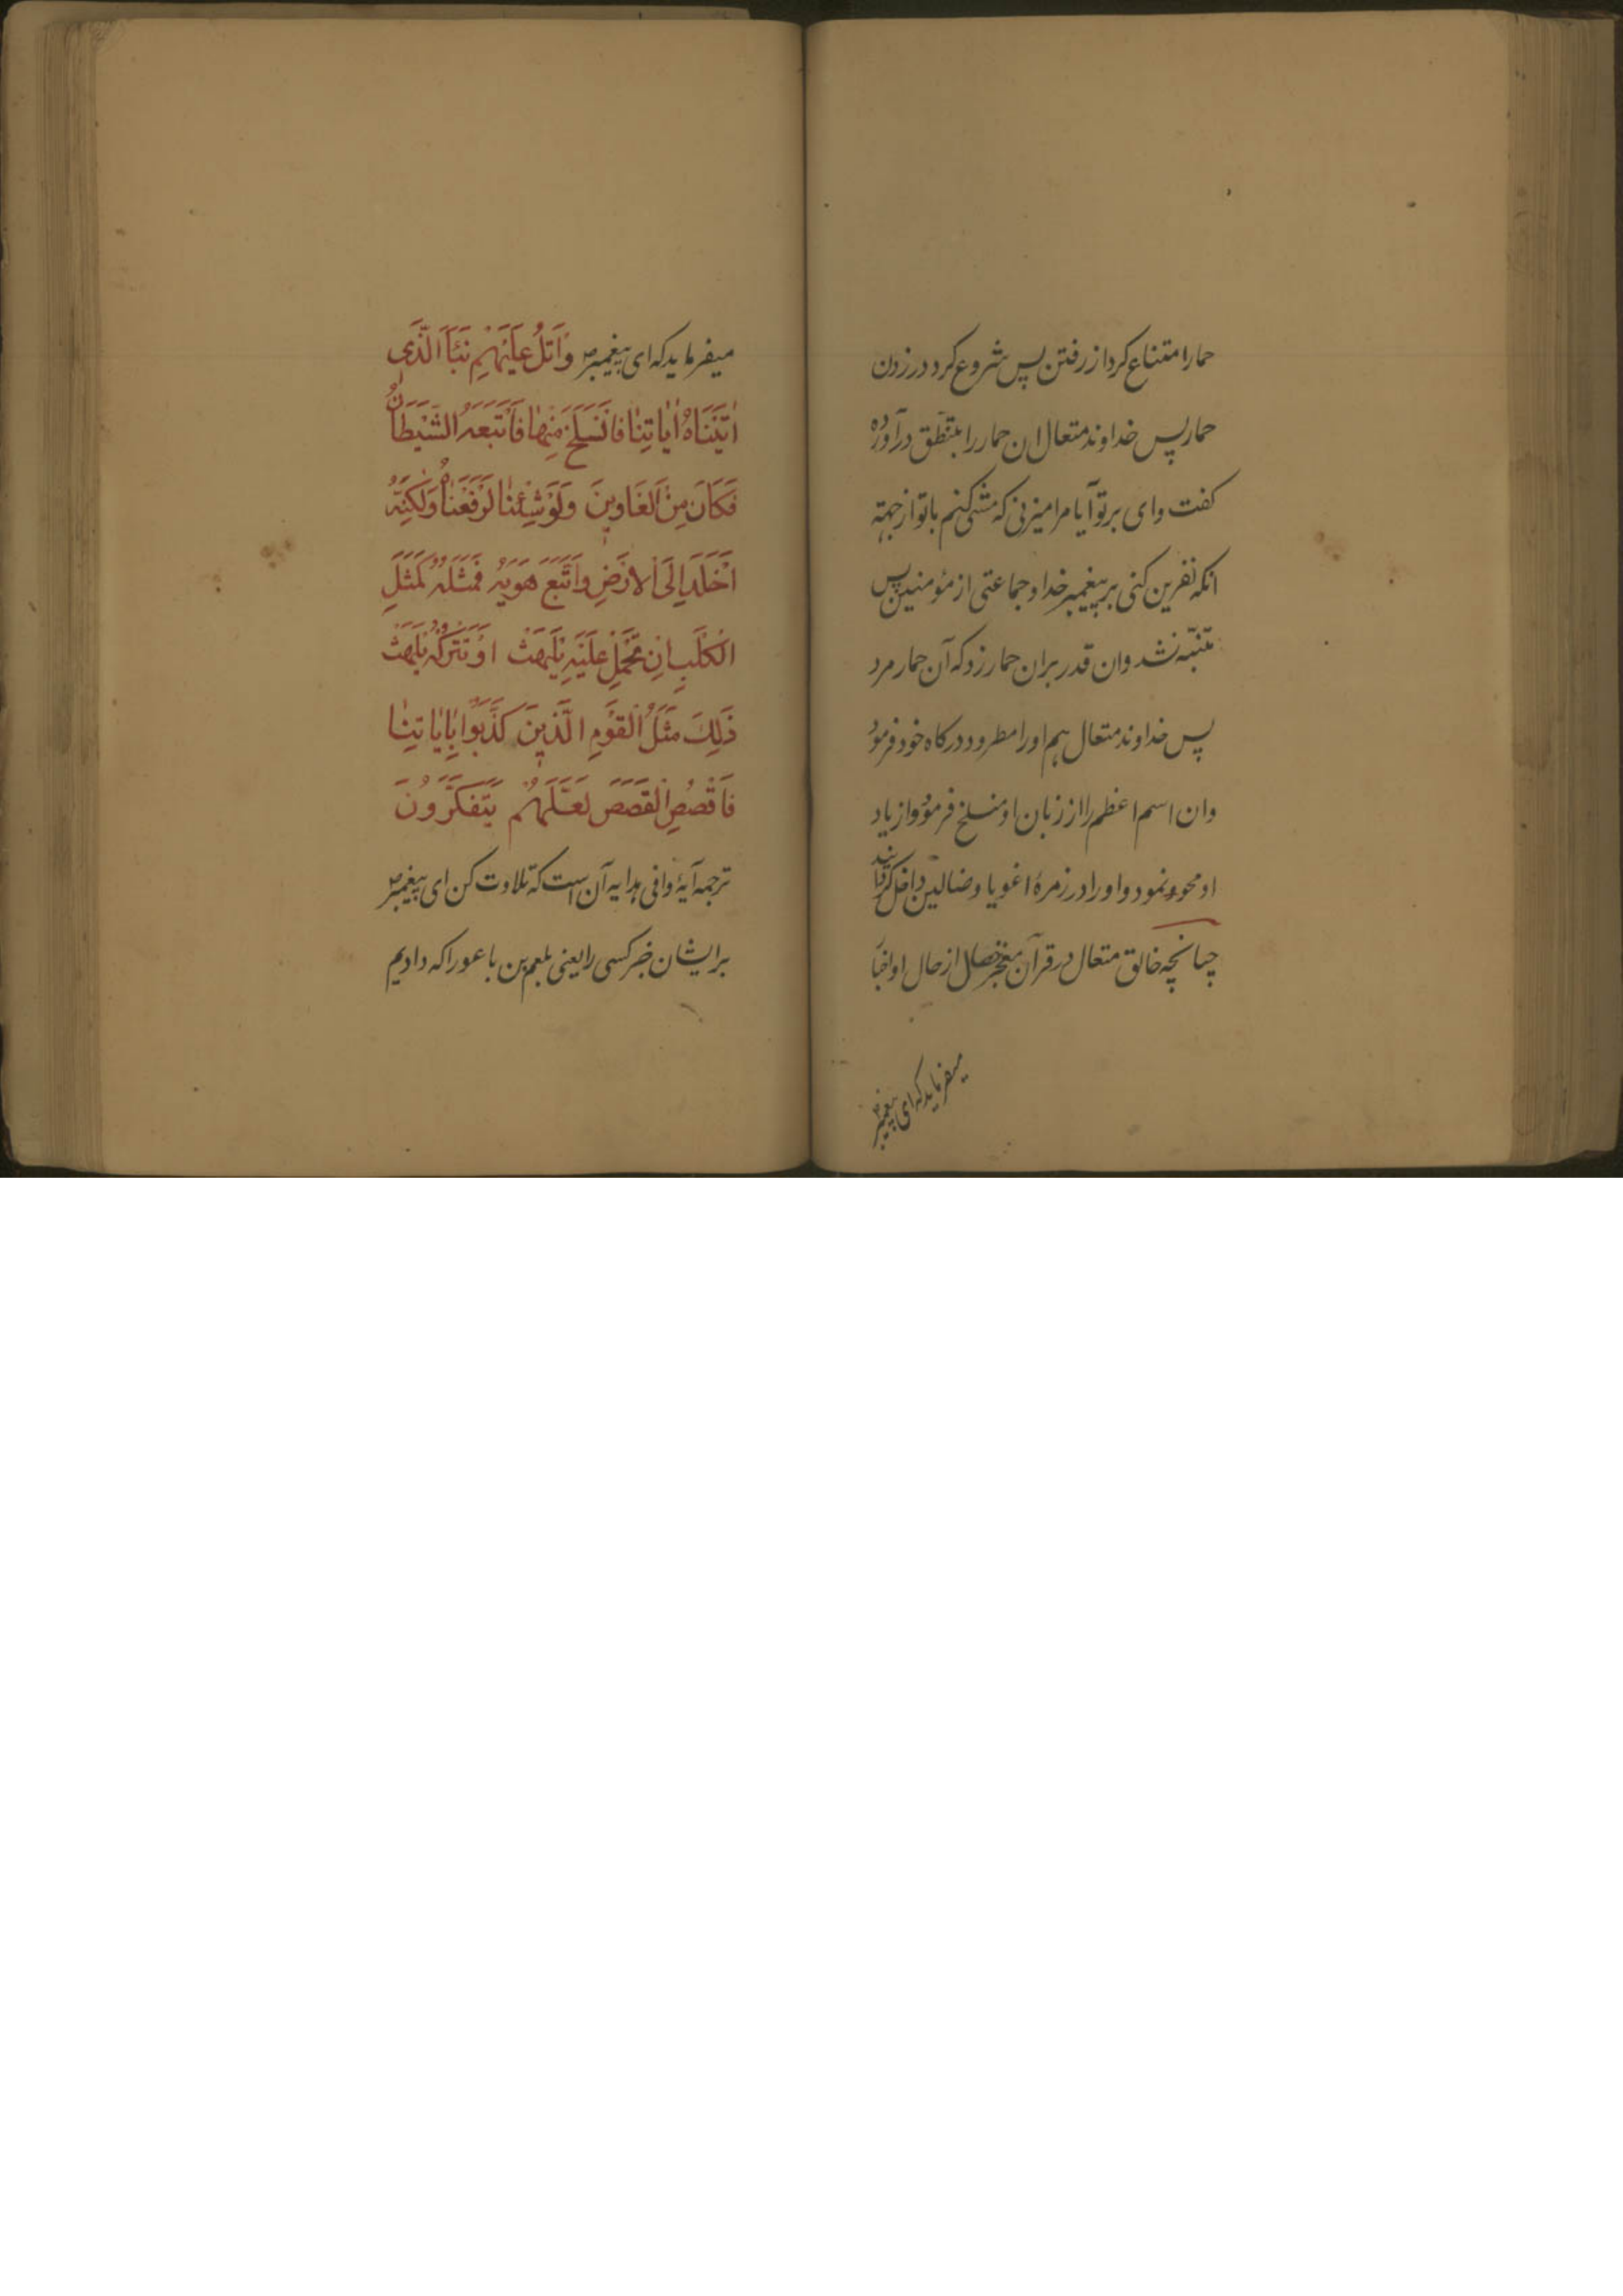 حمار امتناع کرد از رفتن پس شروع کرد در زدن
حمار پس خداوند متعال ان حمار را بتنطق درآورده
کفت وای بر تو آیا مرا میزنی که مشی کنم با تو از جهة
انکه نفرین کنی بر پیغمبر خدا و جماعتی از مؤمنین پس
متنبّه نشد وان قدر بران حمار زد که آن حمار مرد
پس خداوند متعال هم او را مطرود درکاه خود فرمود
وان اسم اعظم را از زبان او منسلخ فرمود و از یاد
او محو نمود و او را در زمرهٔ اغویا و ضالین داخل کردانید
چنانچه خالق متعال در قرآن معجز خصال از حال او اخبا
میفرماید که ای پیغمبر
میفرماید که ای پیغمبرص وَاتْلُ عَلَيْهِمْ نَبَأَ الَّذَي
اٰتَيْنَاهُ اٰيٰاتِنٰا فَانْسَلَخَ مِنْهٰا فَاَتْبَعَهُ الشَّيْطَانُ
فَكَانَ مِنَ الْغَاوِينَ وَلَوْ شِئْنٰا لَرَفَعْنٰاهُ وَلٰكِنَّهُ
اَخْلَدَ اِلَى الْاَرْضِ وَاتَّبَعَ هَوٰيهُ فَمَثَلُهُ كَمَثَلِ
الْكَلْبِ اِنْ تَحْمِلْ عَلَيْهِ يَلْهَثْ اَوْ تَتْرُكْهُ يَلْهَثْ
ذٰلِكَ مَثَلُ الْقَوْمِ الَّذِينَ كَذَّبُوا بِاٰيٰاتِنٰا
فَاقْصُصِ الْقَصَصَ لَعَلَّهُمْ يَتَفَكَّرُونَ
ترجمه آیهٔ وافی هدایه آن است که تلاوت کن ای پیغمبرص
برایشان خبر کسی را یعنی بلعم بن باعورا که دادیم